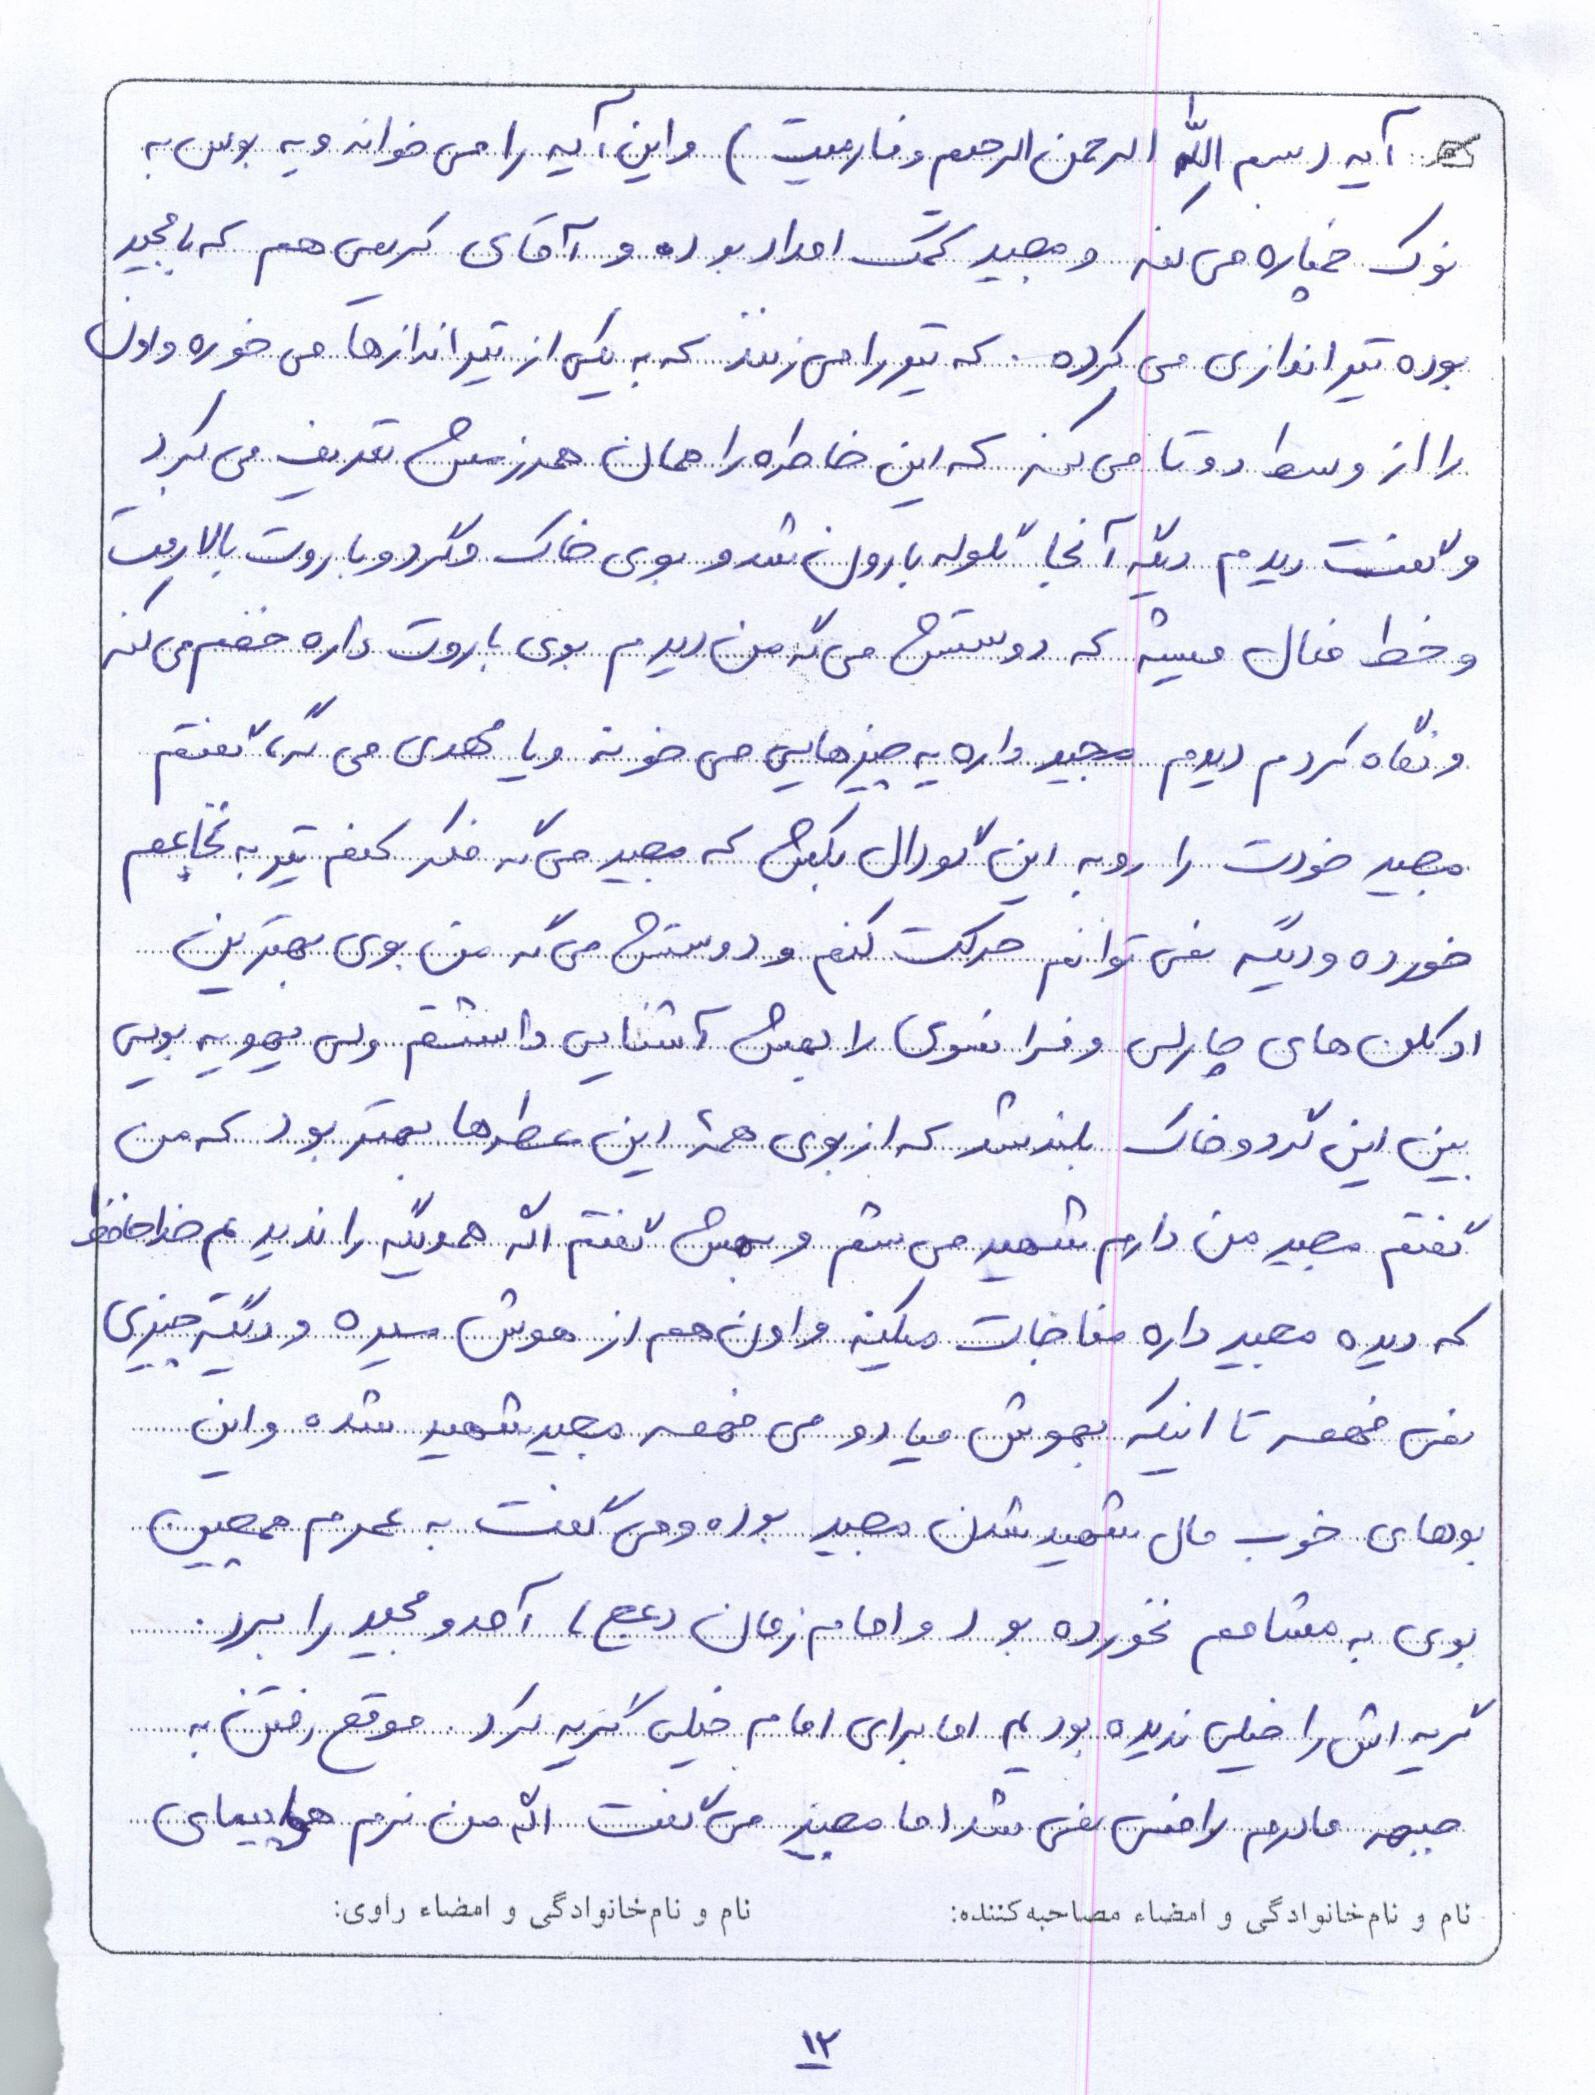 آیه (بسم الله الرحمن الرحیم و مارمیت) و این آیه را می خوانه و یه بوس به
نوک خمپاره می کنه و مجید کمک امداد بوده و آقای کریمی هم که با مجید
بوده تیر اندازی می کرده. که تیر را می زنند که به یکی از تیر اندازها می خوره و اون
را از وسط دو تا می کنه که این خاطره را همان همرزمش تعریف می کرد
و گفت دیدم دیگه آنجا گلوله بارون شد و بوی خاک و گرد و باروت بالا رفت
و خط فعال میشه که دوستش می گه من دیدم بوی باروت داره خفم می کنه
و نگاه کردم دیدم مجید داره یه چیزهایی می خونه و یا مهدی می گه، گفتم
مجید خودت را رو به این گودال بکش که مجید می گه فکر کنم تیر به نخاعم
خورده و دیگه نمی توانم حرکت کنم و دوستش می گه من بوی بهترین
ادکلن های چارلی و فرانسوی را بهش آشنایی داشتم ولی یهو یه بویی
بین این گرد و خاک بلند شد که از بوی همۀ این عطرها بهتر بود که من
گفتم مجید من دارم شهید می شم و بهش گفتم اگه همدیگه را ندیدیم خداحافظ
که دیده مجید داره مناجات میکنه و اون هم از هوش میره و دیگه چیزی
نمی فهمه تا اینکه بهوش میاد و می فهمه مجید شهید شده و این
بوهای خوب مال شهید شدن مجید بوده و می گفت به عمرم همچین
بوی به مشامم نخورده بود و امام زمان (عج) آمد و مجید را برد.
گریه اش را خیلی ندیده بودیم اما برای امام خیلی گریه کرد. موقع رفتن به
جبهه مادرم راضی نمی شد اما مجید می گفت اگه من نرم هواپیمای
نام و نام‌خانوادگی و امضاء مصاحبه‌کننده: نام و نام‌خانوادگی و امضاء راوی:
۱۲